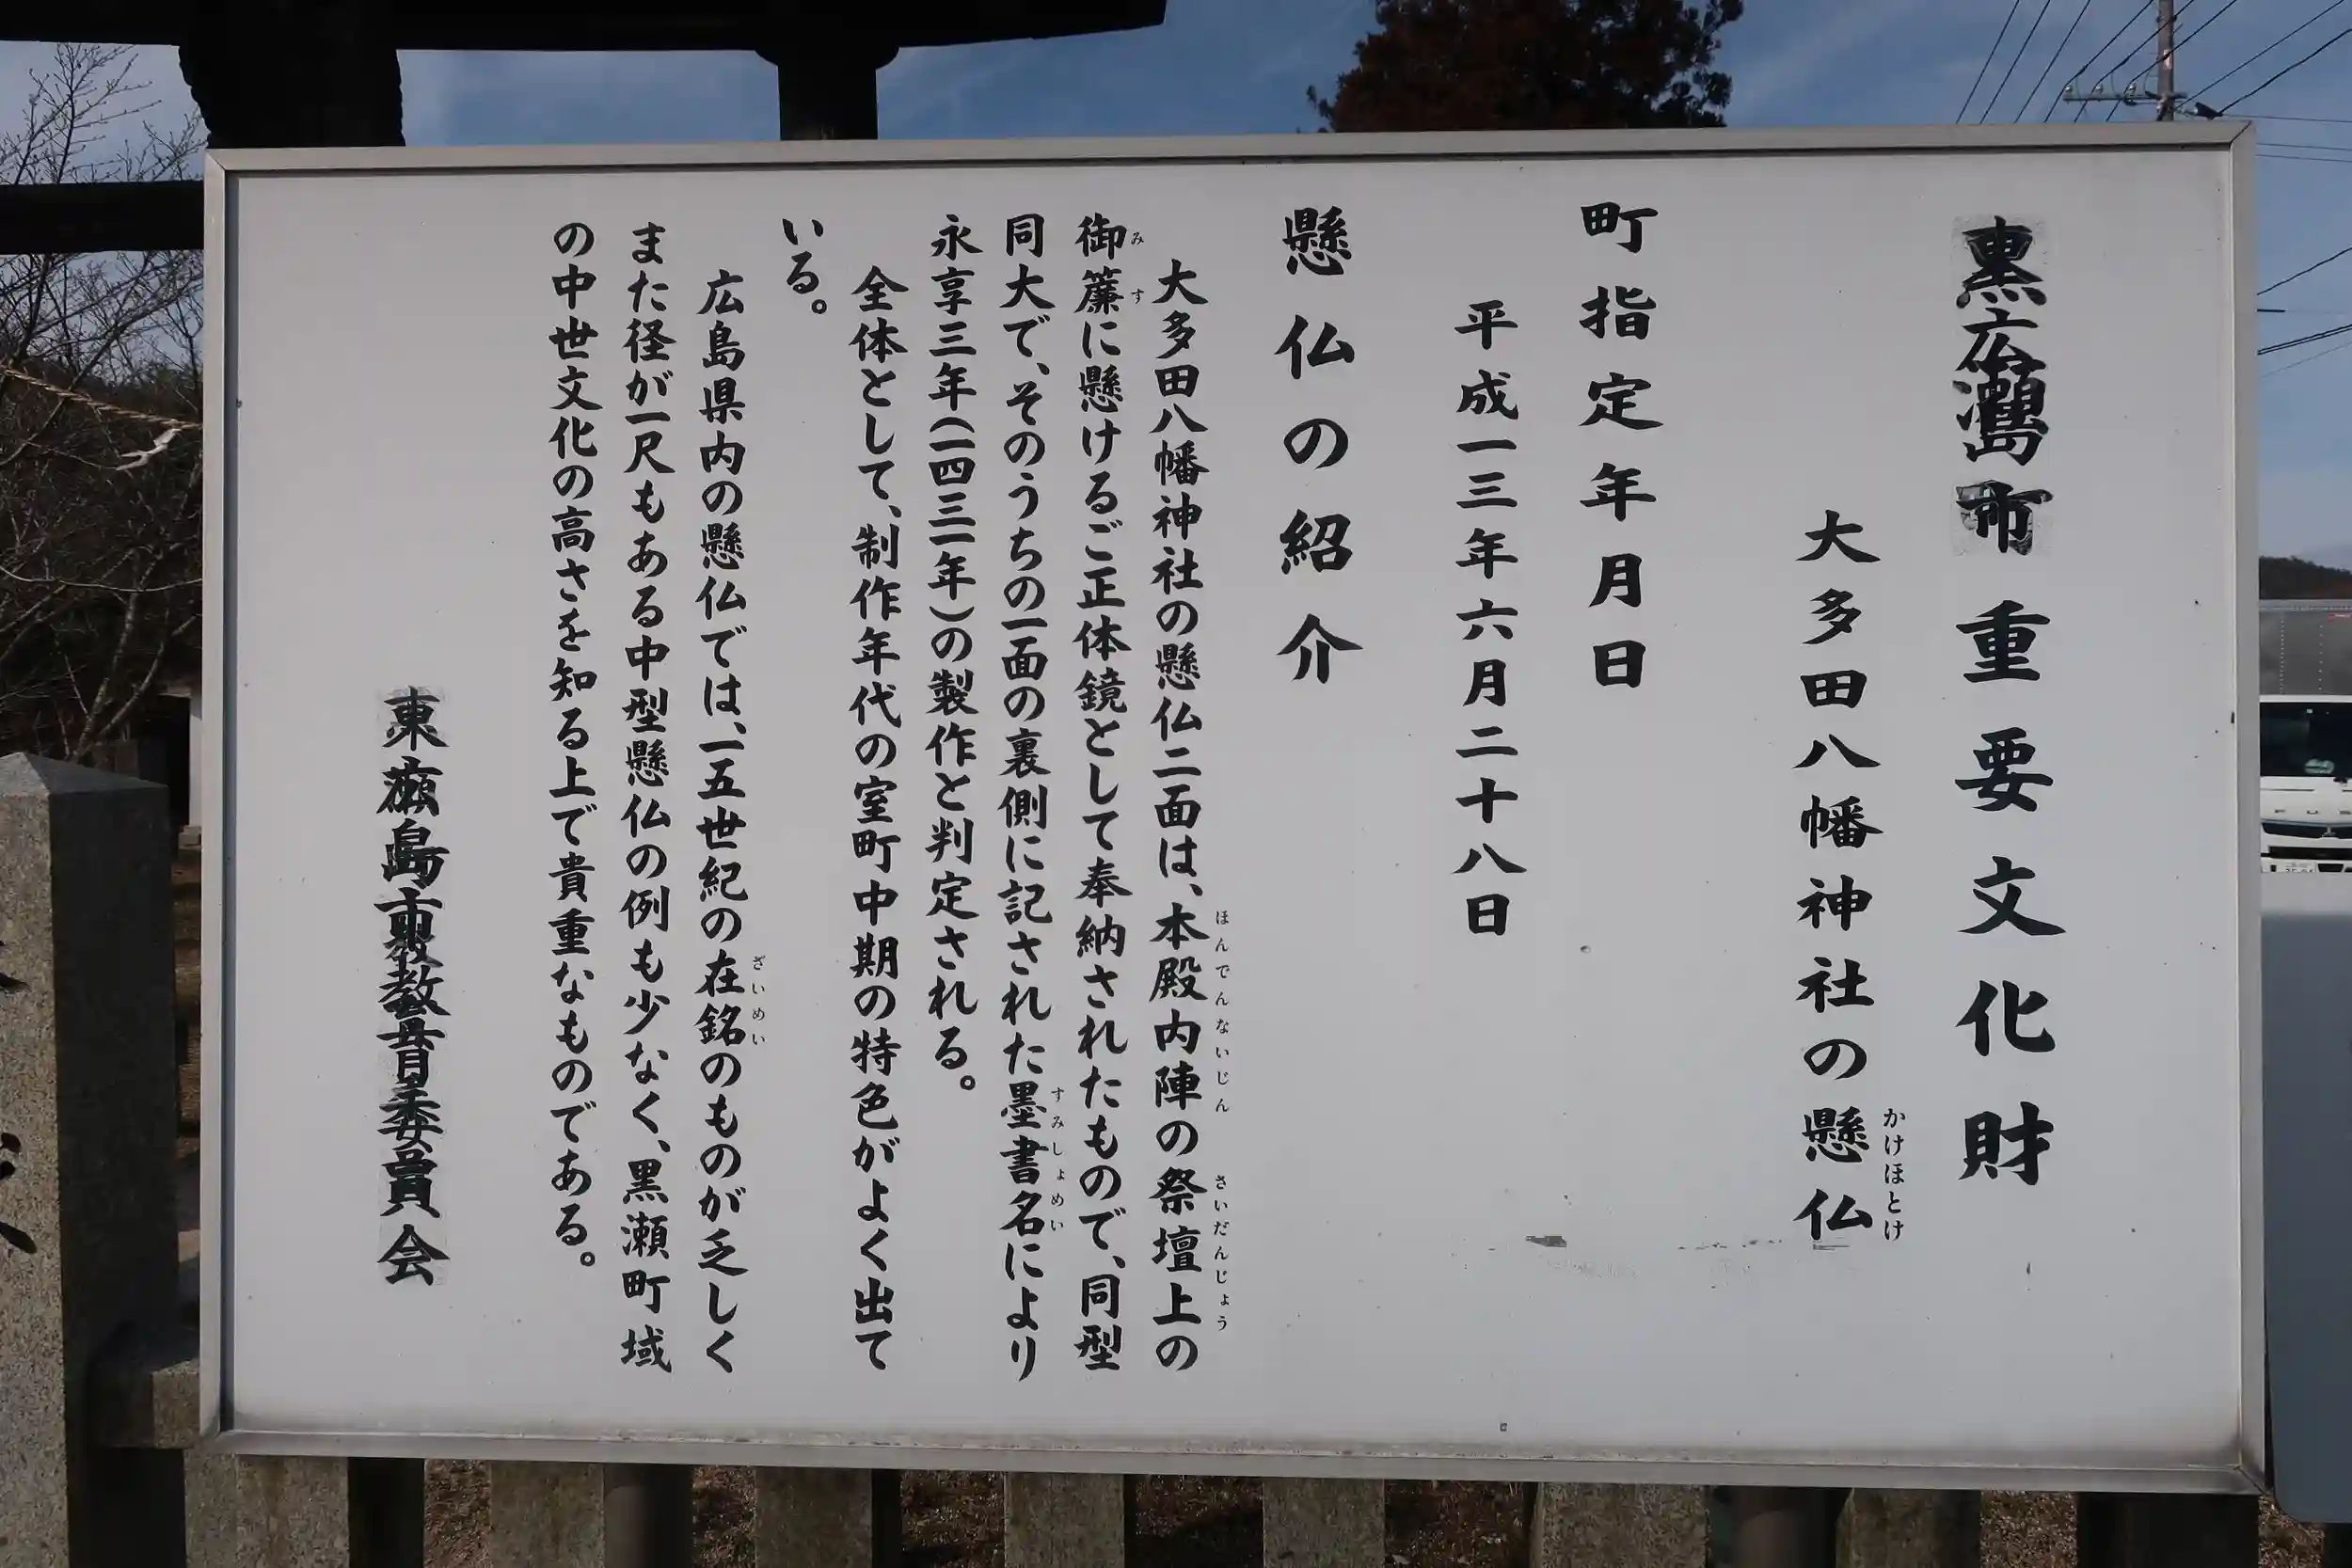 東広島市重要文化財
かけほとけ
大多田八幡神社の懸仏
町指定年月日
平成一三年六月二十八日
懸仏の紹介
ほんでんないじん さいだんじょう
大多田八幡神社の懸仏二面は、本殿内陣の祭壇上の
みす
御簾に懸けるご正体鏡として奉納されたもので、同型
すみしょめい
同大で、そのうちの一面の裏側に記された墨書名により
永享三年(一四三一年)の製作と判定される。
全体として、制作年代の室町中期の特色がよく出て
いる。
ざいめい
広島県内の懸仏では、一五世紀の在銘のものが乏しく
また径が一尺もある中型懸仏の例も少なく、黒瀬町域
の中世文化の高さを知る上で貴重なものである。
東広島市教育委員会